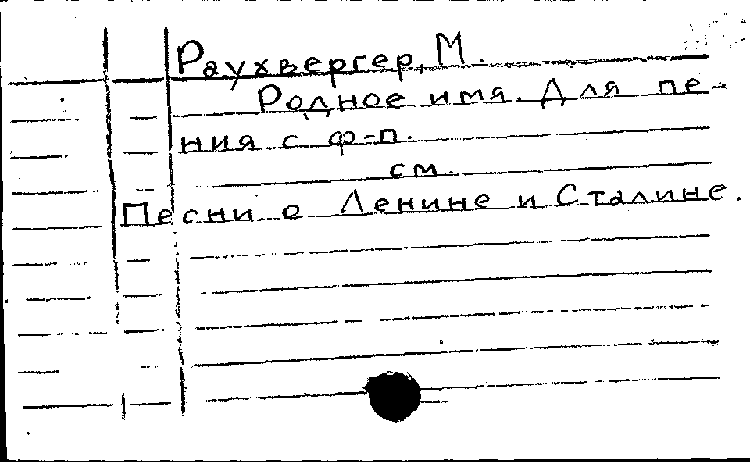 Раухвергер, М.
Родное имя. Для пе-
ния с ф-п.
см.
Песни о Ленине и Сталине.